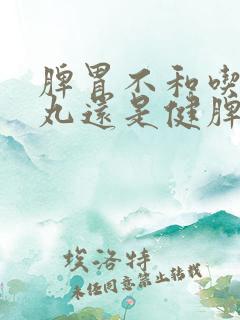 脾胃不和喫
丸還是健脾
埃洛特
未经同意禁止转载